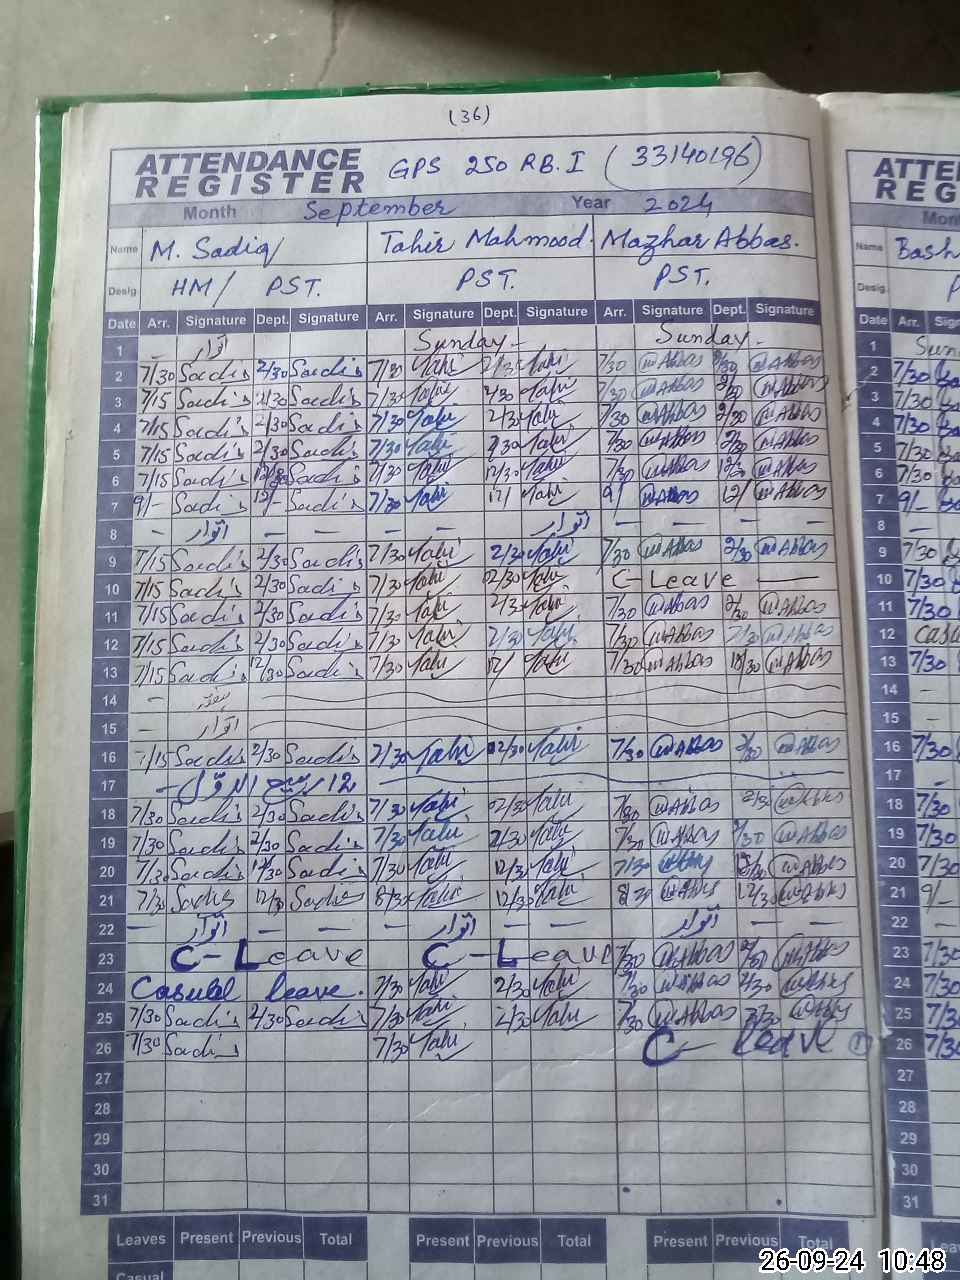 (36)
ATTENDANCE REGISTER GPS 250 RB. I (33140196)
Month September Year 2024
Name M. Sadiq Tahir Mahmood. Mazhar Abbas.
Desig. HM/ PST. PST. PST.
Date Arr. Signature Dept. Signature Arr. Signature Dept. Signature Arr. Signature Dept. Signature
1 – اتوار Sunday – Sunday –
2 7/30 Sadiq 2/30 Sadiq 7/30 Tahir 2/30 Tahir 7/30 M Abbas 2/30 M Abbas
3 7/15 Sadiq 2/30 Sadiq 7/30 Tahir 2/30 Tahir 7/30 M Abbas 2/30 M Abbas
4 7/15 Sadiq 2/30 Sadiq 7/30 Tahir 2/30 Tahir 7/30 M Abbas 2/30 M Abbas
5 7/15 Sadiq 2/30 Sadiq 7/30 Tahir 2/30 Tahir 7/30 M Abbas 2/30 M Abbas
6 7/15 Sadiq 12/30 Sadiq 7/30 Tahir 12/30 Tahir 7/30 M Abbas 12/30 M Abbas
7 9/- Sadiq 12/- Sadiq 7/30 Tahir 12/ Tahir 9/ M Abbas 12/ M Abbas
8 – اتوار – – – – اتوار – – – –
9 7/15 Sadiq 2/30 Sadiq 7/30 Tahir 2/30 Tahir 7/30 M Abbas 2/30 M Abbas
10 7/15 Sadiq 2/30 Sadiq 7/30 Tahir 02/30 Tahir C-Leave —
11 7/15 Sadiq 2/30 Sadiq 7/30 Tahir 2/30 Tahir 7/30 M Abbas 2/30 M Abbas
12 7/15 Sadiq 2/30 Sadiq 7/30 Tahir 2/30 Tahir 7/30 M Abbas 2/30 M Abbas
13 7/15 Sadiq 12/30 Sadiq 7/30 Tahir 12/ Tahir 7/30 M Abbas M Abbas
14 – ہفتہ
15 – اتوار
16 7/15 Sadiq 2/30 Sadiq 7/30 Tahir 02/30 Tahir 7/30 M Abbas 2/30 M Abbas
17 – 12 ربیع الاول
18 7/30 Sadiq 2/30 Sadiq 7/30 Tahir 02/30 Tahir 7/30 M Abbas 2/30 M Abbas
19 7/30 Sadiq 2/30 Sadiq 7/30 Tahir 2/30 Tahir 7/30 M Abbas 2/30 M Abbas
20 7/30 Sadiq 12/30 Sadiq 7/30 Tahir 12/30 Tahir 7/30 Abbas 12/30 M Abbas
21 7/30 Sadiq 12/30 Sadiq 8/30 Tahir 12/30 Tahir 8/30 M Abbas 12/30 M Abbas
22 – اتوار – – – اتوار – – – اتوار – –
23 C-Leave C-Leave 7/30 M Abbas 2/30 M Abbas
24 Casual leave. 7/30 Tahir 2/30 Tahir 7/30 M Abbas 2/30 M Abbas
25 7/30 Sadiq 2/30 Sadiq 7/30 Tahir 2/30 Tahir 7/30 M Abbas M Abbas
26 7/30 Sadiq 7/30 Tahir C- Leave
27
28
29
30
31
Leaves Present Previous Total Present Previous Total Present Previous Total
Casual
Name Bash
Desig. P
Date Arr.
1 Sun
2 7/30
3 7/30
4 7/30
5 7/30
6 7/30
7 9/-
8 –
9 7/30
10 7/30
11 7/30
12 Casu
13 7/30
14 –
15 –
16 7/30
17 –
18 7/30
19 7/30
20 7/30
21 9/-
22 –
23 7/30
24 7/30
25 7/30
26 7/30
27
28
29
30
31
26-09-24 10:48